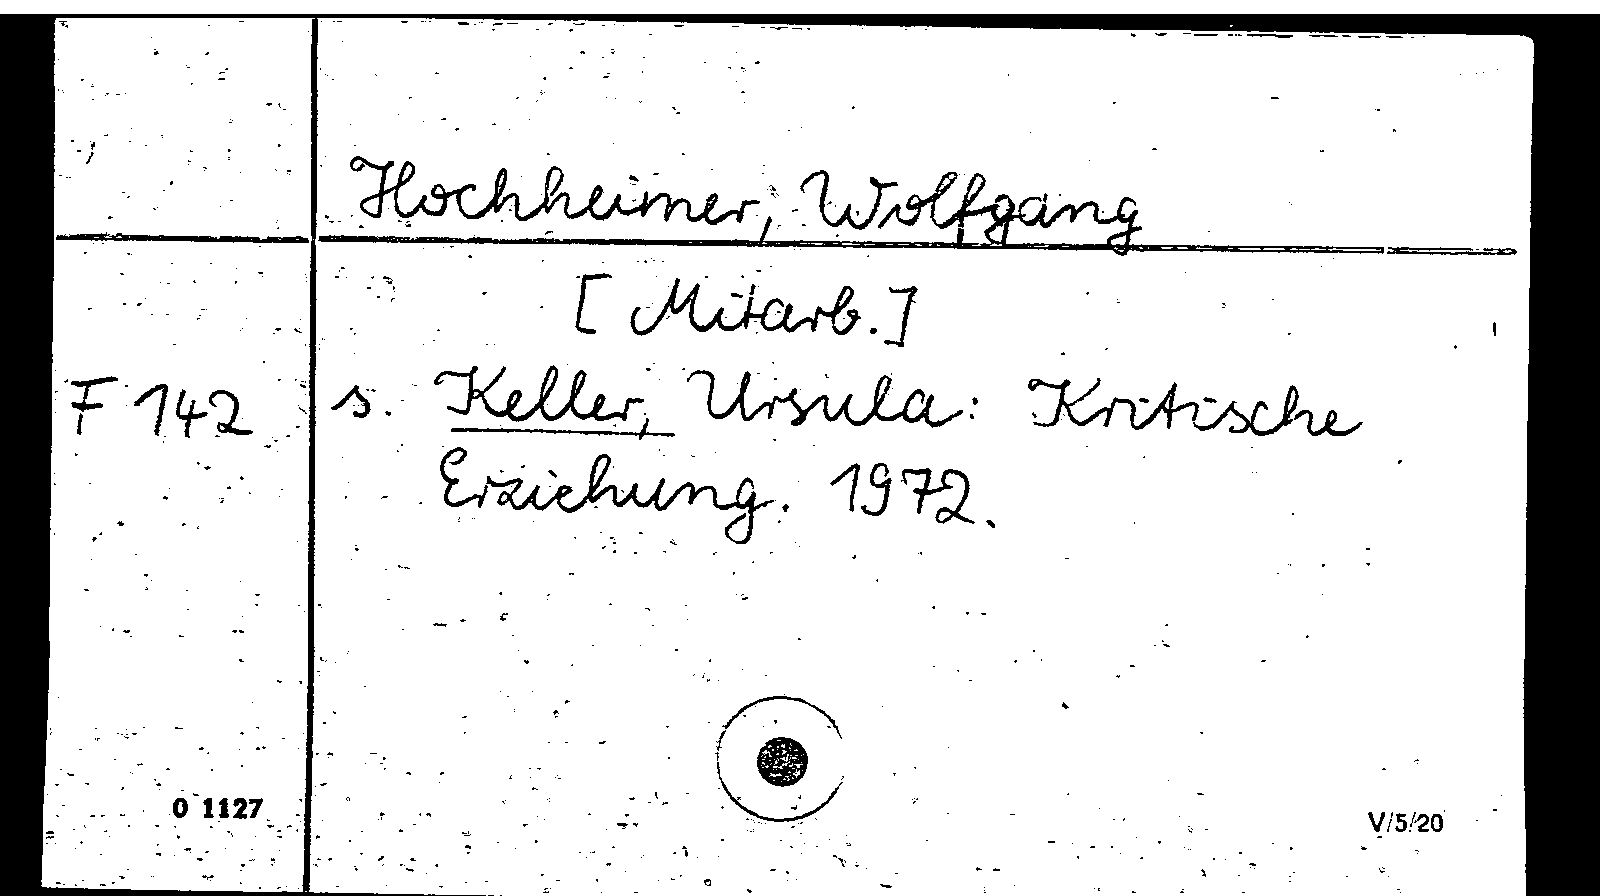 Hochheimer, Wolfgang
[Mitarb.]
F 142 s. Keller, Ursula: Kritische
Erziehung. 1972.
0 1127
V/5/20